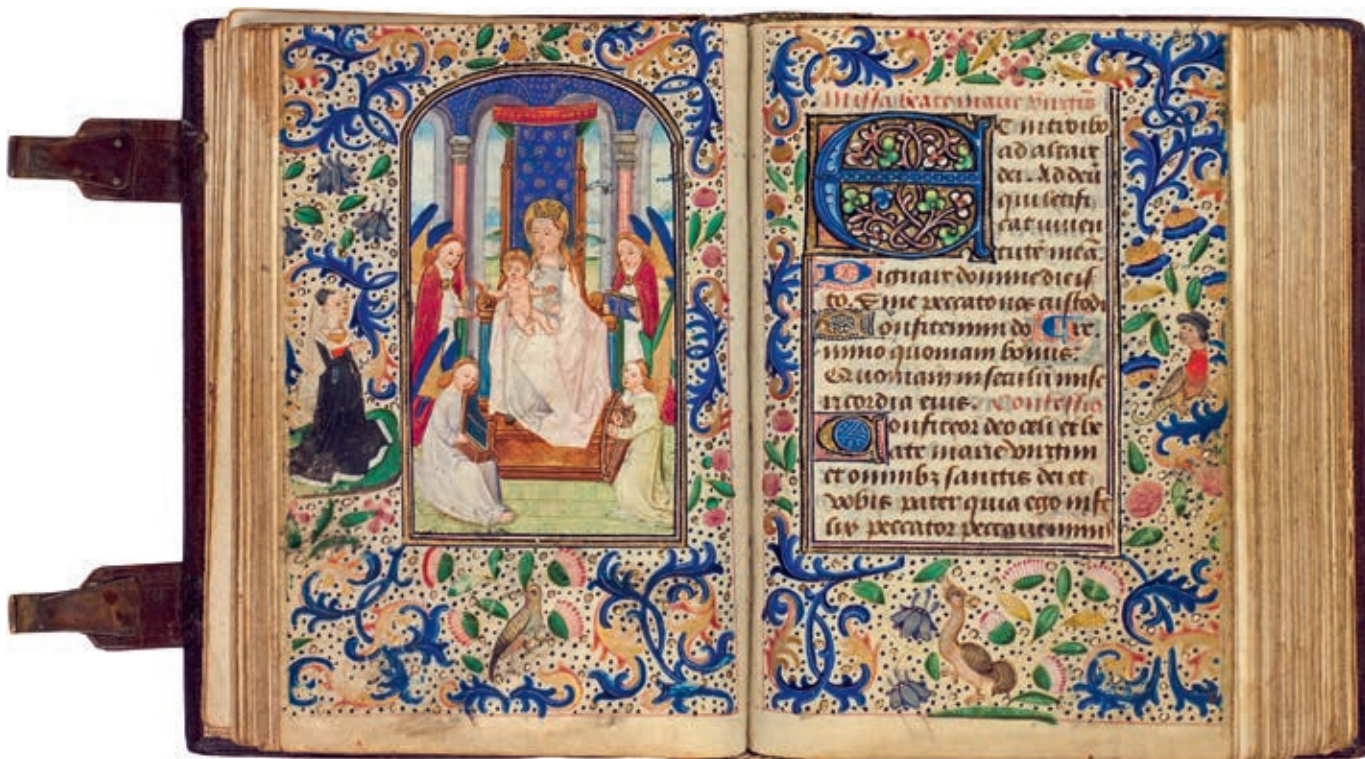 Missa beate marie virginis
Et introibo
ad altare
dei. Ad deū
qui letifi
cat iuuen
tutē meā.
Dignare domine die is
to. Sine peccato nos custodi
Confitemini do
mino quoniam bonus.
Quoniam in seculū mise
ricordia eius. Confessio
Confiteor deo celi et be
ate marie virgini
et omnibꝫ sanctis dei et
vobis pater quia ego infe
lix peccator peccaui nimis